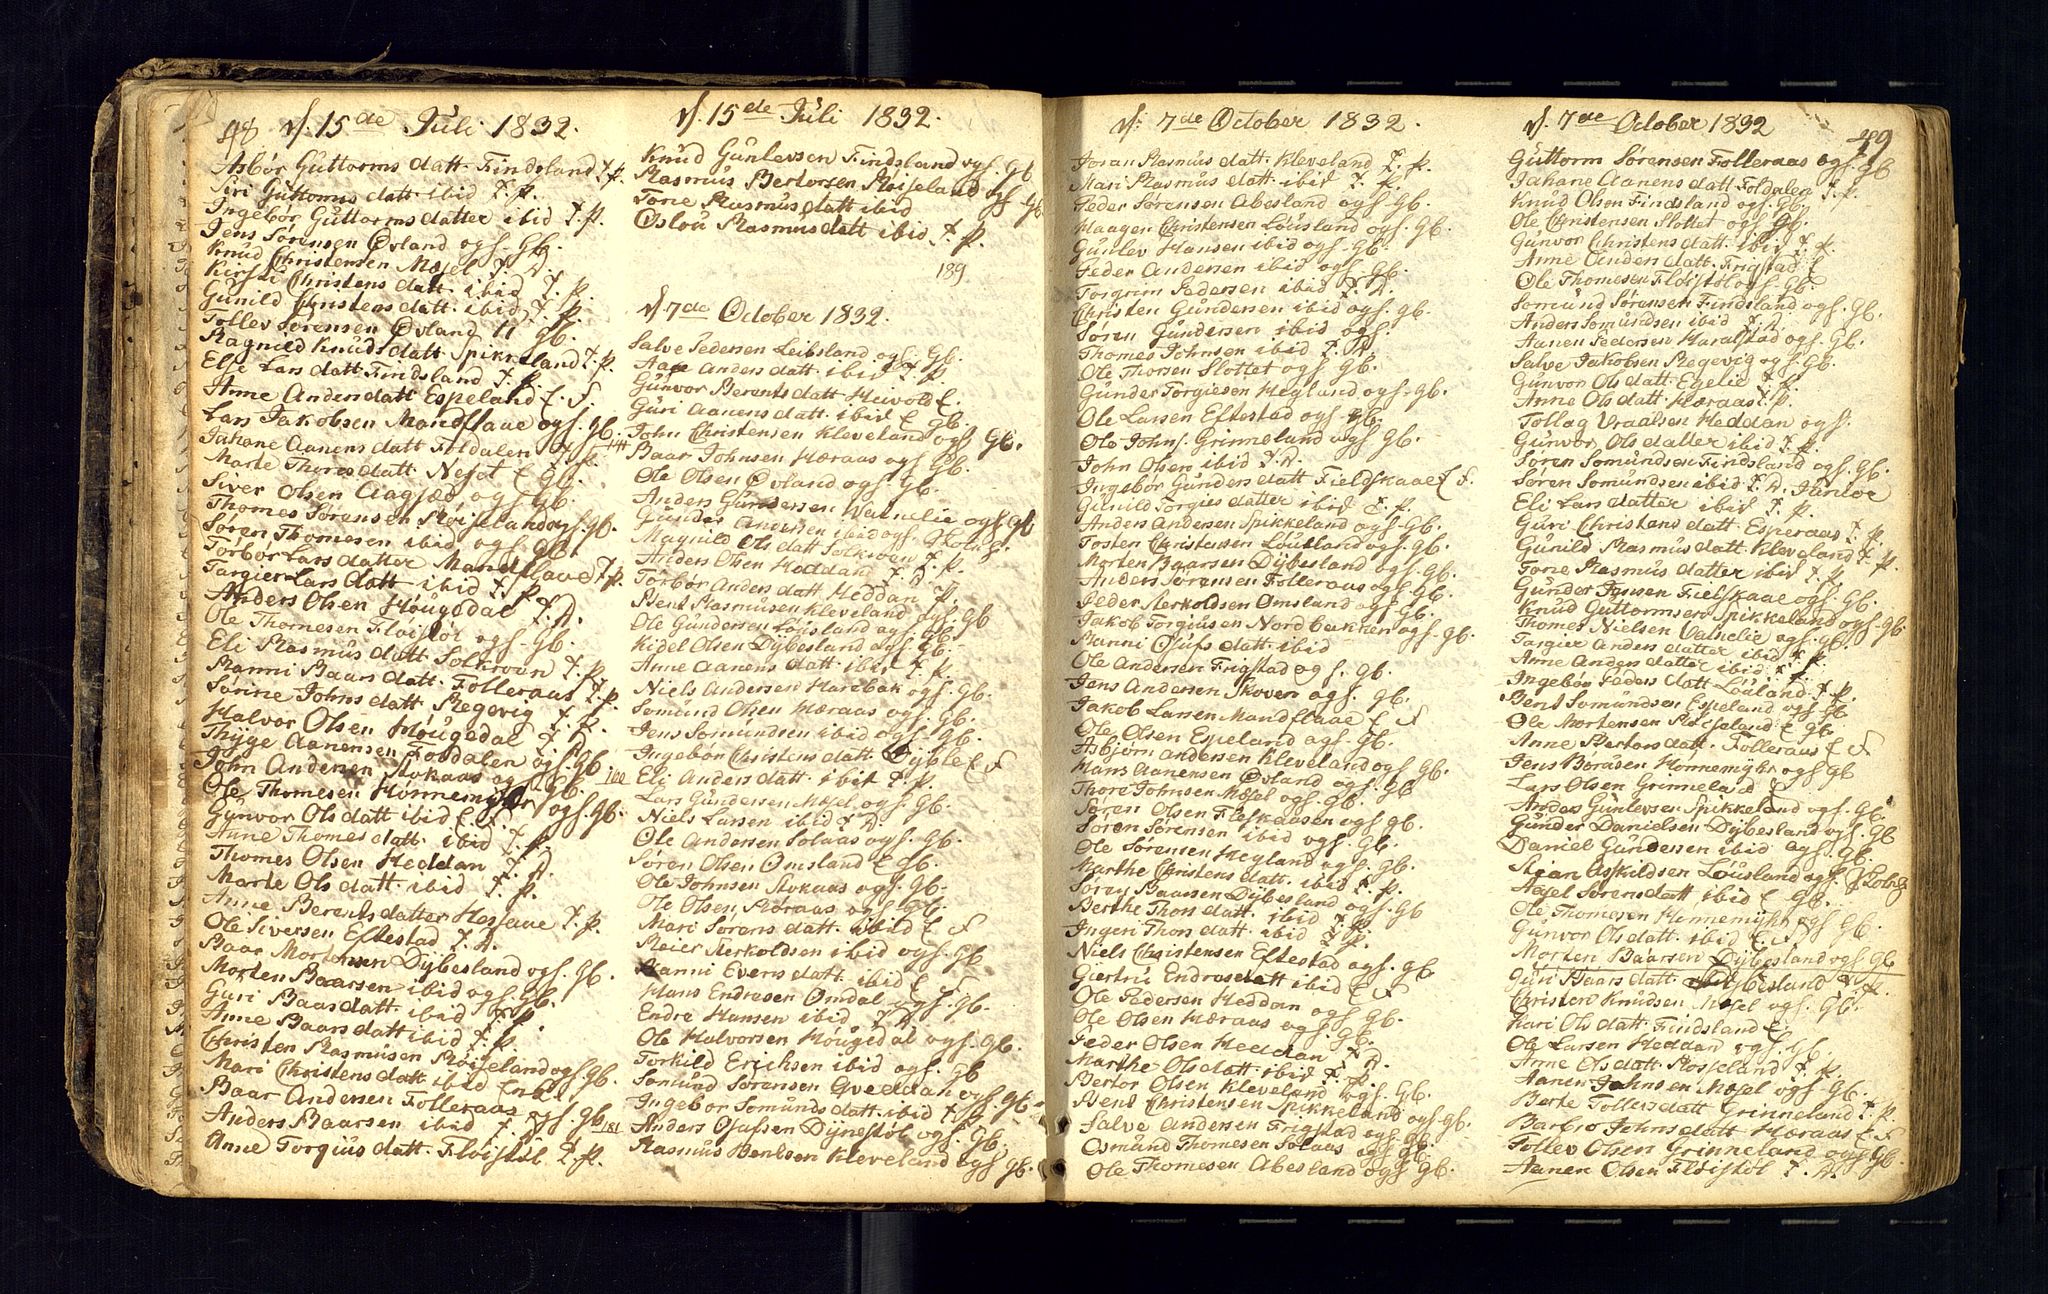 48 d. 15de Juli 1832.
Asbør Guttorms datt. Findsland T. P.
Siri Guttorms datt ibid T. P.
Ingebor Guttorms datter ibid T. P.
Jens Sørensen Øvland ogs. Gb.
Knud Christensen Mæsel T. D.
Kirsti Christens datt. ibid T. P.
Gunild Christens datt. ibid T. P.
Tollev Sørensen Øvland Gb.
Ragnild Knuds datt Spikkeland T. P.
Else Lars datt Findsland T. P.
Anne Anders datt Espeland E. F.
Lars Jakobsen Mandflaae ogs. Gb.
Jahane Aanens datt Foldalen T. P.
Marte Thores datt. E Gb.
Siver Olsen Aagjæd ogs Gb.
Thomes Sørensen Røiseland ogs. Gb.
Søren Thomesen ibid ogs Gb.
Torbør Lars datter Mandflaae T. P.
Targier Lars datt ibid T. P.
Anders Olsen Hougedal T. D.
Ole Thomesen Fløistøl ogs. Gb.
Eli Rasmus datt T. P.
Ranni Baars datt. Folleraas T. P.
Sønne Johns datt Regevig T. P.
Halvor Olsen Hougedal T. D.
Thyge Aanensen Foldalen ogs. Gb.
John Andersen Stokaas ogs Gb.
Ole Thomesen Honnemyhr ogs. Gb.
Gunvor Ols datt ibid E F
Anne Thomes datt. ibid T. P.
Thomes Olsen Heddan T. D.
Marte Ols datt. ibid T. P.
Anne Berents datter Hesaae T. P.
Ole Siversen Eftestad T. D.
Baar Mortensen Dybesland ogs. Gb.
Morten Baarsen ibid ogs. Gb.
Guri Baars datt. ibid T. P.
Anne Baars datt ibid T. P.
Christen Rasmusen Røiseland ogs Gb.
Mari Christens datt ibid E
Baar Andersen Folleraas ogs. Gb.
Anders Baarsen ibid T. D.
Anne Torgius datt. Fløistøl T. P.
d. 15de Juli 1832.
Knud Gunlevsen Findsland ogs. Gb
Rasmus Bertorsen Røiseland ogs Gb.
Torie Rasmus datt ibid
Oslou Rasmus datt ibid T. P.
189
d 7de October 1832.
Salve Pedersen Leibsland ogs. Gb.
Aase Anders datt. ibid T. P.
Gunvor Berents datt Heivold E.
Guri Aanens datt. ibid E Gb.
John Christensen Kleveland ogs Gb.
144 Baar Johnsen Hæraas ogs Gb.
Ole Olsen Øvland ogs. Gb.
Anders Gundersen Valnelie ogs Gb
Gunder Andersen ibid ogs.
Magnild Ols datt T. P.
Anders Olsen Heddan T. D.
Torbør Anders datt Heddan T. P.
Bent Rasmusen Kleveland ogs Gb
Ole Gundersen Lousland ogs Gb.
Kidel Olsen Dybesland ogs Gb.
Anne Aanens datt ibid T. P.
Niels Andersen Harebak ogs. Gb.
Somund Olsen Hæraas ogs. Gb.
Jens Somundsen ibid ogs. Gb.
Ingebør Christens datt. E F
100 Eli Anders datt. ibid T. P.
Lars Gundersen Mæsel ogs. Gb.
Niels Larsen ibid T. D.
Ole Andersen Solaas ogs. Gb.
Søren Olsen Omsland E Gb.
Ole Johnsen Stokaas ogs. Gb.
Ole Olsen Røraas ogs. Gb.
Mari Sørens datt. ibid E F
Reier Terkoldsen ibid ogs. Gb
Ranni Evens datt. ibid E F
Hans Endresen Omdal ogs. Gb.
Endre Hansen ibid T. D.
Ole Halvorsen Hougedal ogs. Gb.
Torkild Ericksen ibid ogs. Gb
Somund Sørensen Qveddan ogs Gb.
Ingebor Somunds datt. ibid T. P.
181 Anders Osufsen Dynestøl ogs. Gb.
Rasmus Bentsen Kleveland ogs Gb.
d. 7de October 1832.
Joran Rasmus datt. Kleveland T. P.
Mari Rasmus datt. ibid T. P.
Peder Sørensen Abesland ogs. Gb.
Haagen Christensen Lousland ogs. Gb.
Gunlev Hansen ibid ogs. Gb.
Peder Andersen ibid ogs Gb.
Torgrim Pedersen ibid T. D.
Christen Gundersen ibid ogs. Gb.
Søren Gundersen ibid ogs.
Thomes Johnsen ibid T. D.
Ole Thorsen Slottet ogs Gb.
Gunder Torgiesen Heglund ogs. Gb.
Ole Larsen Eftestad ogs. Gb.
Ole Johns. Grinneland ogs Gb.
John Olsen ibid T. D.
Ingebør Gunders datt Fieldskaae E F.
Gunild Torgies datter ibid T. P.
Anders Andersen Spikkeland ogs. Gb.
Tosten Christensen Lousland ogs. Gb.
Morten Baarsen Dybesland ogs. Gb.
Anders Sørensen Folleraas ogs Gb.
Peder Terkoldsen Omsland ogs. Gb.
Jakob Torgiusen Nordbakken ogs. Gb.
Ranni Osufs datt ibid
Ole Andersen Frigstad ogs. Gb.
Jens Andersen Skoven ogs. Gb.
Jakob Larsen Mandflaae E F
Ole Olsen Espeland ogs. Gb.
Asbjørn Andersen Kleveland ogs. Gb.
Hans Aanensen Øvland ogs Gb.
Thore Johnsen Mæsel ogs. Gb.
Søren Olsen Fleskaasen ogs Gb.
Søren Sørensen ibid ogs. Gb.
Ole Sørensen Hegland ogs. Gb.
Marthe Christens datt. ibid T. P.
Søren Baarsen Dybesland ogs. Gb
Berthe Thors datt. ibid T. P.
Ingeri Thors datt. ibid T. P.
Niels Christensen Eftestad ogs. Gb
Giertru Endres datt ibid E F
Ole Pedersen Heddan ogs Gb.
Ole Olsen Hæraas ogs Gb.
Peder Olsen Heddan T. D.
Marthe Ols datt. ibid T. P.
Bertor Olsen Kleveland ogs. Gb.
Bent Christensen Spikkeland ogs. Gb.
Salve Andersen Frigstad ogs Gb.
Osmund Thomesen Solaas ogs Gb.
Ole Thomesen Abesland ogs Gb.
d. 7de October 1832 49
Guttorm Sørensen Folleraas ogs. Gb
Jahane Aanens datt Foldalen T. P.
Knud Olsen Findsland ogs. Gb.
Ole Christensen Slottet ogs Gb.
Gunvor Christens datt. ibid T. P.
Anne Anders datt. Frigstad E
Ole Thomesen Fløistøl ogs. Gb.
Somund Sørensen Findsland ogs. Gb.
Anders Somundsen ibid T. D.
Aanen Pedersen Haralstad ogs. Gb.
Salve Jakobsen Regevig ogs Gb.
Gunvor Ols datt. Egelie T. P.
Anne Ols datt. Hæraas T. P.
Tollag Vraalsen Heddan ogs.
Gunvor Ols datter ibid T. P.
Søren Somundsen Findsland ogs. Gb.
Søren Somundsen ibid T. D. Junior
Eli Lars datter ibid T. P.
Guri Christens datt. Esperaas T. P.
Gunild Rasmus datt. Kleveland T. P
Torie Rasmus datter ibid T. P.
Gunder Fielskaae ogs. Gb.
Knud Guttormsen Spikkeland ogs. Gb.
Thomes Nielsen Valnelie ogs. Gb.
Targier Anders datter ibid T. P.
Anne Anders datter ibid T. P.
Ingebør Peders datt Louland T. P
Bent Somundsen Espeland ogs Gb
Ole Mortensen Røiseland E Gb
Anne Bertors datt. Folleraas E F
Jens Boräsen Honnemyhr ogs Gb
Lars Olsen Grimeland E
Anders Gunlevsen Spikkeland ogs. Gb.
Gunder Danielsen Dybesland ogs. Gb
Daniel Gundersen ibid ogs. Gb.
Stian Askildsen Lousland ogs.
Axel Sørens datt ibid E Gb.
Ole Thomesen Hønnemyhr ogs Gb.
Gunvor Ols datt. ibid E F
Morten Baarsen Dybesland ogs Gb
Guri Baars datt. Dybesland T. P.
Christen Knudsen Mæsel ogs. Gb.
Kari Ols datt. Findsland E
Ole Larsen Heddan ogs. Gb.
Anne Ols datt Rosseland T. P.
Aanen Johnsen Mæsel ogs. Gb.
Berte Tollefs datt Grinneland T. P.
Barbro Johns datt. Hæraas E F
Tollev Olsen Grinneland ogs Gb.
Aanen Olsen Fløistøl T. D.